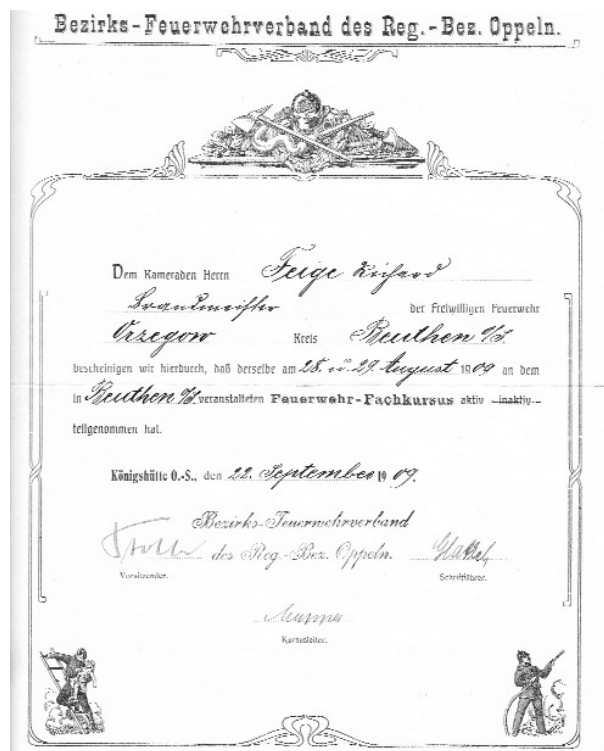 Bezirks-Feuerwehrverband des Reg.-Bez. Oppeln.
Dem Kameraden Herrn Feige Richard
Brandmeister der Freiwilligen Feuerwehr
Orzegow Kreis Beuthen O/S.
bescheinigen wir hierdurch, daß derselbe am 28. u. 29. August 1909 an dem
in Beuthen O/S. veranstalteten Feuerwehr-Fachkursus aktiv inaktiv
teilgenommen hat.
Königshütte O.-S., den 22. September 1909.
Bezirks-Feuerwehrverband
des Reg-Bez. Oppeln.
Vorsitzender. Schriftführer.
Kursusleiter.